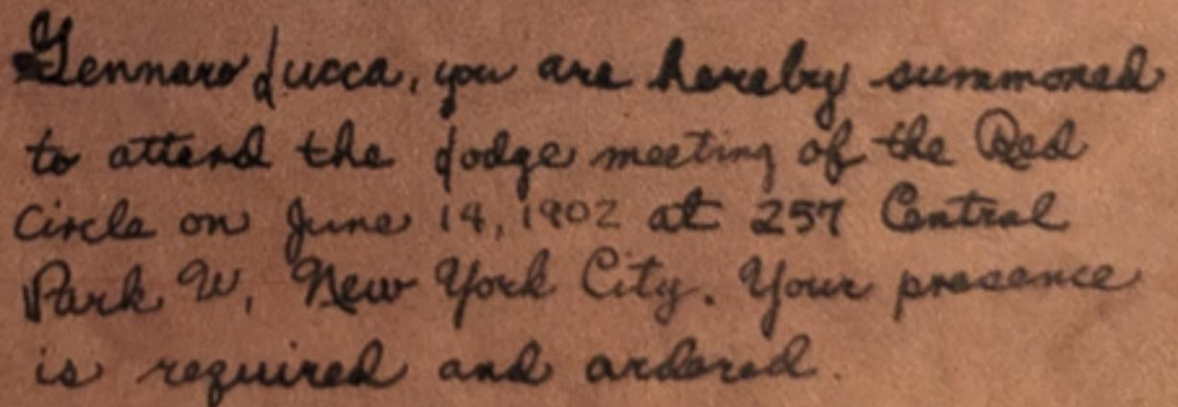 Gennaro Lucca, you are hereby summoned
to attend the Lodge meeting of the Red
Circle on June 14, 1902 at 257 Central
Park W, New York City. Your presence
is required and ordered.